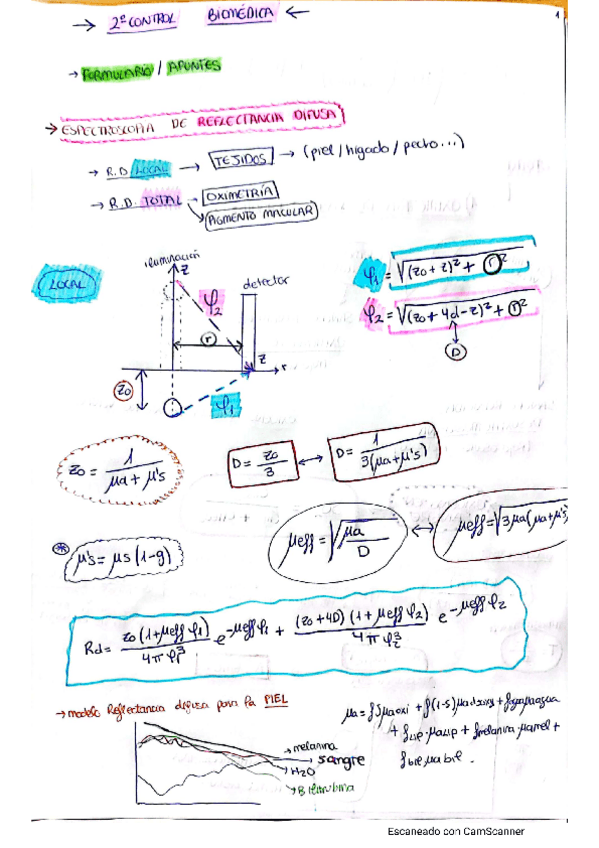 1
→ 2º CONTROL BIOMÉDICA ←
→ FORMULARIO / APUNTES
→ ESPECTROSCOPIA DE REFLECTANCIA DIFUSA
→ R.D LOCAL → TEJIDOS → (piel / hígado / pecho...)
→ R.D. TOTAL → OXIMETRÍA
→ PIGMENTO MACULAR
LOCAL
iluminación
z
detector
φ₂
r
z
r
z₀
φ₁
φ₁ = √(z₀ + z)² + r²
φ₂ = √(z₀ + 4d - z)² + r²
D
z₀ = 1 / (μa + μ's)
D = z₀/3 ↔ D = 1 / 3(μa + μ's)
* μ's = μs (1-g)
μeff = √(μa/D) ↔ μeff = √3μa(μa + μ's
Rd = z₀(1+μeff φ₁) / 4πφ₁³ e^-μeff φ₁ + (z₀+4D)(1+μeff φ₂) / 4πφ₂³ e^-μeff φ₂
→ modelo Reflectancia difusa para la PIEL
melanina
sangre
H₂O
Bilirrubina
μa = f S μaoxi + f(1-S) μadxoxi + fagua μaagua
+ flip · μalip + fmelanina · μamel +
fbil · μa bil.
Escaneado con CamScanner